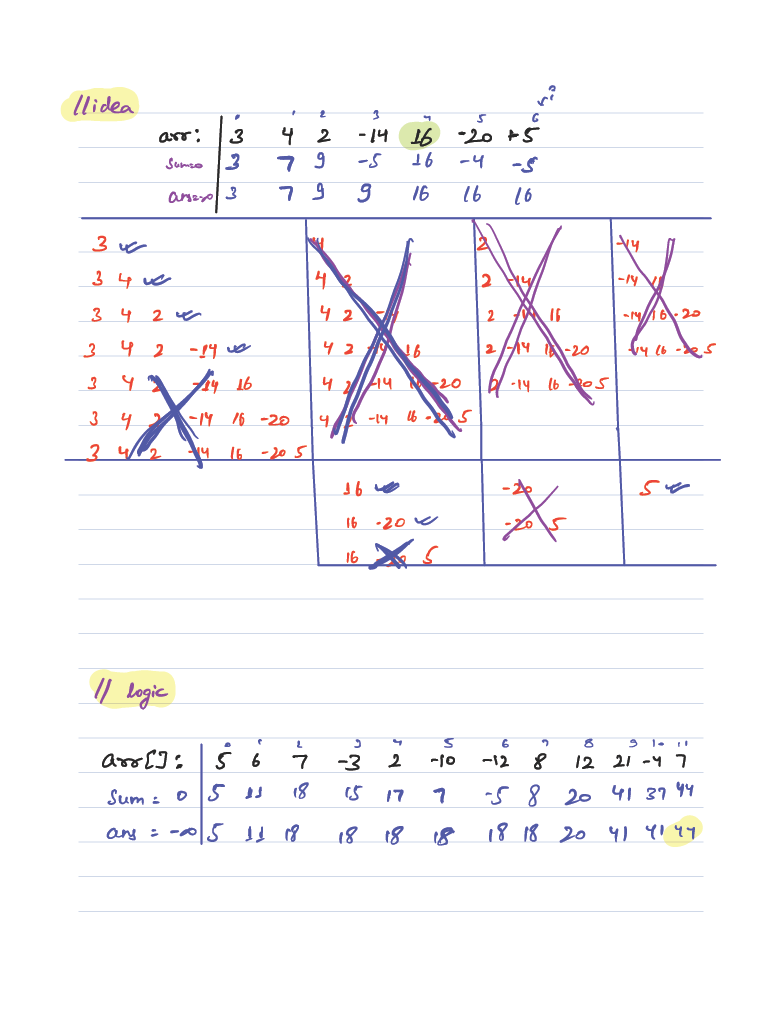 //idea
0 1 2 3 4 5 6
arr: 3 4 2 -14 16 -20 +5
sum=0 3 7 9 -5 16 -4 -5
ans=-∞ 3 7 9 9 16 16 16
3
3 4
3 4 2
3 4 2 -14
3 4 2 -14 16
3 4 2 -14 16 -20
3 4 2 -14 16 -20 5
4
4 2
4 2 -14
4 2 -14 16
4 2 -14 16 -20
4 2 -14 16 -20 5
2
2 -14
2 -14 16
2 -14 16 -20
2 -14 16 -20 5
-14
-14 16
-14 16 -20
-14 16 -20 5
16
16 -20
16 -20 5
-20
-20 5
5
// logic
0 1 2 3 4 5 6 7 8 9 10 11
arr[]: 5 6 7 -3 2 -10 -12 8 12 21 -4 7
Sum = 0 5 11 18 15 17 7 -5 8 20 41 37 44
ans = -∞ 5 11 18 18 18 18 18 18 20 41 41 44